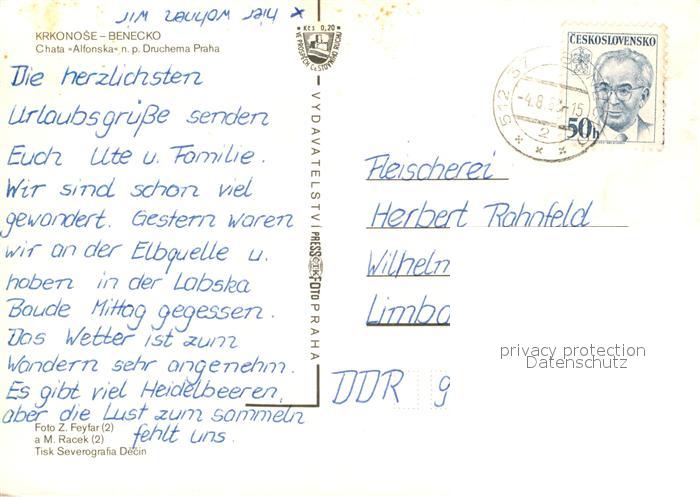 x hier wohnen wir
KRKONOŠE – BENECKO
Chata »Alfonska« n. p. Druchema Praha
Die herzlichsten
Urlaubsgrüße senden
Euch Ute u. Familie.
Wir sind schon viel
gewandert. Gestern waren
wir an der Elbquelle u.
haben in der Labska
Baude Mittag gegessen.
Das Wetter ist zum
Wandern sehr angenehm.
Es gibt viel Heidelbeeren,
aber die Lust zum sammeln
fehlt uns.
Foto Z. Feyfar (2)
a M. Racek (2)
Tisk Severografia Děčín
Kčs 0,20
VE PROSPĚCH CESTOVNÍHO RUCHU
VYDAVATELSTVÍ PRESSFOTO PRAHA
ČESKOSLOVENSKO
50h
512 37
-4.8.8 -15
2
Fleischerei
Herbert Rahnfeld
Wilhelm
Limba
DDR 9
privacy protection
Datenschutz